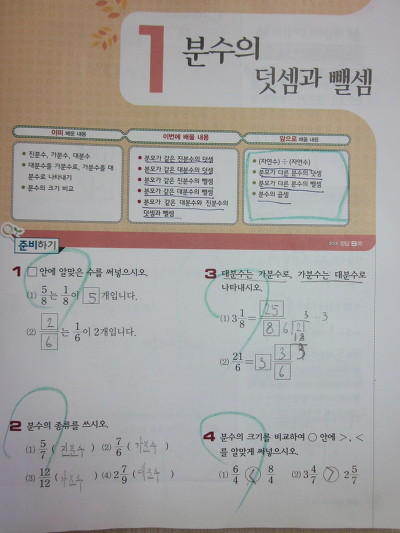 1 분수의
덧셈과 뺄셈
이미 배운 내용
• 진분수, 가분수, 대분수
• 대분수를 가분수로, 가분수를 대
분수로 나타내기
• 분수의 크기 비교
이번에 배울 내용
• 분모가 같은 진분수의 덧셈
• 분모가 같은 대분수의 덧셈
• 분모가 같은 진분수의 뺄셈
• 분모가 같은 대분수의 뺄셈
• 분모가 같은 대분수와 진분수의
덧셈과 뺄셈
앞으로 배울 내용
• (자연수) ÷ (자연수)
• 분모가 다른 분수의 덧셈
• 분모가 다른 분수의 뺄셈
• 분수의 곱셈
준비하기
정답 9쪽
1 □ 안에 알맞은 수를 써넣으시오.
(1) 5/8는 1/8이 5개입니다.
(2) 2/6는 1/6이 2개입니다.
2 분수의 종류를 쓰시오.
(1) 5/7 (진분수) (2) 7/6 (가분수)
(3) 12/12 (가분수) (4) 2 7/9 (대분수)
3 대분수는 가분수로, 가분수는 대분수로
나타내시오.
(1) 3 1/8 = 25/8
(2) 21/6 = 3 3/6
4 분수의 크기를 비교하여 ○ 안에 >, <
를 알맞게 써넣으시오.
(1) 6/4 < 8/4 (2) 3 4/7 > 2 5/7